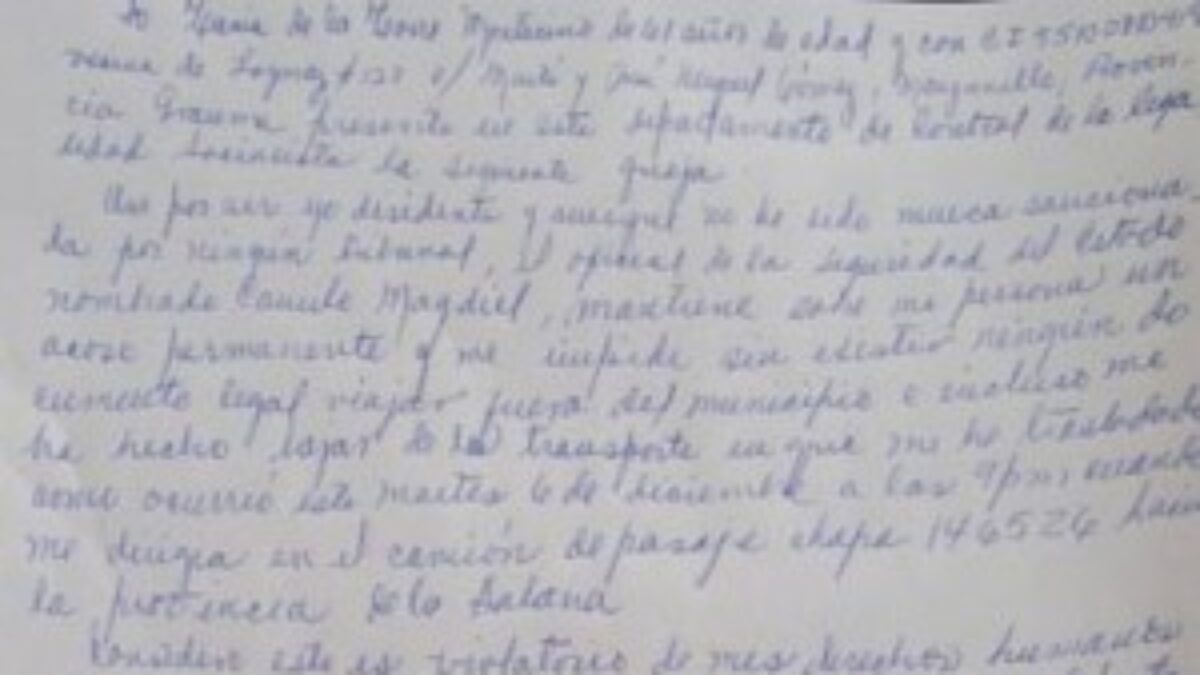 de la Torre de 61 años de edad y con CI
vecina de # 128 e/ Martí y José Miguel Gómez, Manzanillo, Provin-
cia Granma presento en este departamento de Control de la lega
lidad Socialista la siguiente queja
Que por ser yo disidente y aunque no he sido nunca sanciona
da por ningún tribunal, el oficial de la Seguridad del Estado
nombrado Camilo Magdiel, mantiene sobre mi persona un
acoso permanente y me impide sin existir ningún do
cumento legal viajar fuera del municipio e incluso me
ha hecho bajar de los transporte en que me he trasladado
como ocurrió este martes 6 de diciembre a las 9pm, cuando
me dirigia en el camión de pasaje chapa 146526 hacia
la provincia de la Habana
Considero esto es violatorio de mis derechos humanos